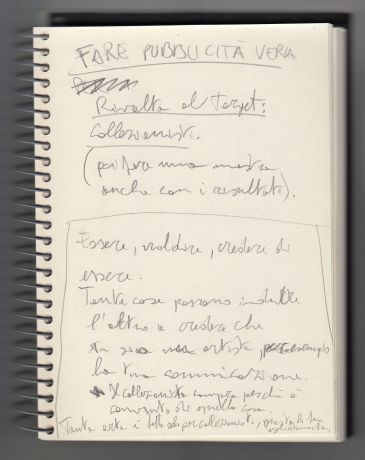 FARE PUBBLICITÀ VERA
Rivolta al Target:
Collezionisti.
(poi fare una mostra
anche con i risultati).
Essere, vendere, credere di
essere.
Tante cose possono indurre
l'altro a credere che
tu sia un artista, per esempio
la tua comunicazione.
Il collezionista compra perché è
convinto di quella cosa.
Tanta arte è fatta da pre collezionisti,